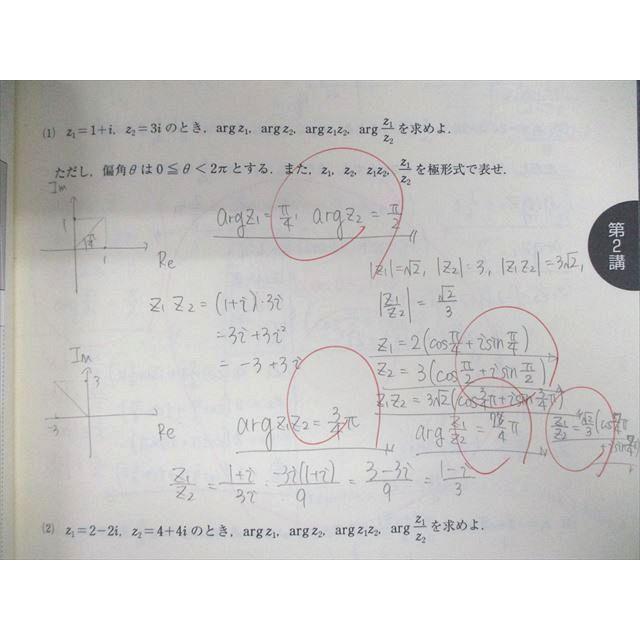 (1) z₁=1+i, z₂=3i のとき, arg z₁, arg z₂, arg z₁z₂, arg z₁/z₂ を求めよ.
ただし, 偏角θは0≦θ<2πとする. また, z₁, z₂, z₁z₂, z₁/z₂ を極形式で表せ.
Im
1
1
Re
argz₁ = π/4, argz₂ = π/2
第2講
|z₁|=√2, |z₂|=3, |z₁z₂|=3√2,
|z₁/z₂| = √2/3
z₁ z₂ = (1+i)・3i
= 3i+3i²
= -3+3i
z₁ = 2(cosπ/4+isinπ/4)
z₂ = 3(cosπ/2+isinπ/2)
z₁z₂ = 3√2(cos3/4π+isin3/4π)
Im
3
-3
Re
argz₁z₂ = 3/4π
arg z₁/z₂ = 7/4π
z₁/z₂ = √2/3(cos7/4π
+isin7/4π)
z₁/z₂ = 1+i/3i = -3i(1+i)/9 = 3-3i/9 = 1-i/3
(2) z₁=2-2i, z₂=4+4i のとき, arg z₁, arg z₂, arg z₁z₂, arg z₁/z₂ を求めよ.